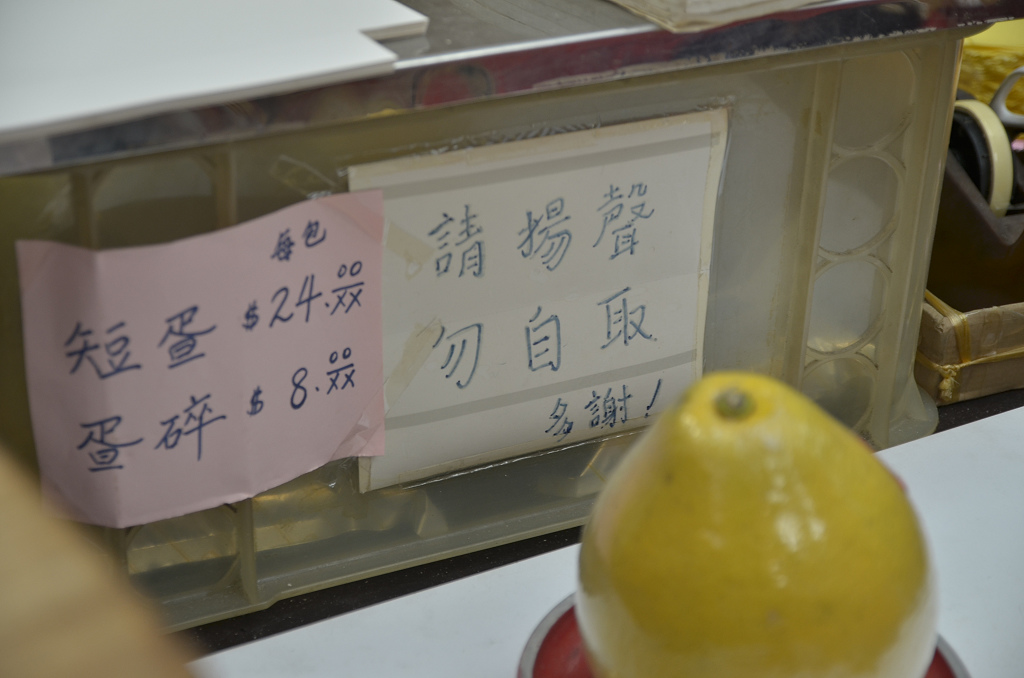 每包
短蛋 $24.00/XX
蛋碎 $8.00/XX
請揚聲
勿自取
多謝!